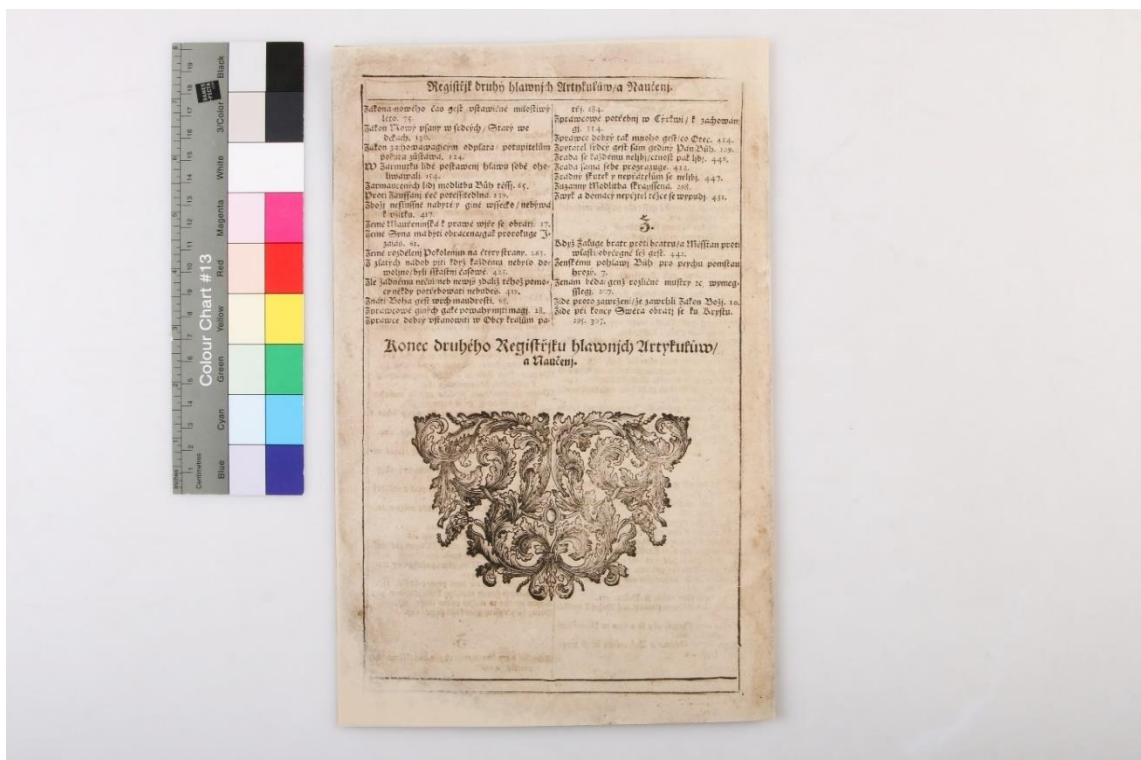 Regiſtřjk druhý hlawnjch Artykulůw/a Naučenj.
Zákona nowého čas geſt vſtawičné miloſtiwý
léto. 75.
Zákon Nowý pſaný w ſrdcých / Starý we
dckách. 130.
Zákon zachowawagjcým odplata / potupitelům
pokuta zůſtáwá. 124.
W Zármutku lidé poſtawenj hlawu ſobě obe-
liwawali. 154.
Zarmaucených lidj modlitbu Bůh těſſj. 65.
Proti Zauffánj řeč
Zbožj neſlyſſné nabyté y giné wſſecko / nebýwá
k vžitku. 417.
Země Mauřenjnſká k prawé wjře ſe obrátj. 17.
Země Syna má býti obrácena/gak prorokuge J-
zaiáš. 61.
Země rozdělenj Pokolenjm na čtyry ſtrany. 263.
Z zlatých nádob pjti když každému nebylo do-
wolno/byli ſſťaſtnj čaſowé. 425.
Zlé žádnému nečiň neb newjš zdaliž téhož pomo-
cy někdy potřebowati nebudeš. 412.
Znáti Boha geſt wrch maudroſti. 98.
Zpráwcowé giných gaké powahy mjti magj. 28.
Zpráwce dobrý vſtanowiti w Obcy králům pa-
třj. 184.
Zpráwcowé potřebnj w Cýrkwi / k zachowán-
gj. 114.
Zpráwce dobrý tak mnoho geſt/co Otec. 424.
Zpytatel ſrdcý geſt ſám gediný Pán Bůh. 109.
Zrada ſe každémuneljbj/ctnoſt pak ljbj. 448.
Zrada ſama ſebe prozrazuge. 412.
Zrádný ſkutek y nepřátelům ſe neljbj. 447.
Zuzanny Modlitba ſkrauſſená. 208.
Zwyk a domácý nepřjtel těžce ſe wypudj. 431.
Ž.
Když Žaluge bratr proti bratru/a Měſſťan proti
wlaſti obyčegně lež geſt. 442.
Ženſkému pohlawj Bůh pro peychu pomſtau
hrozý. 7.
Ženám běda/genž rozličné muſtry ꝛc wymeg-
ſſlegj. 207.
Židé proto zawrženj/že zawrhli Zákon Božj. 10.
Židé při koncy Swěta obrátj ſe ku Kryſtu.
205. 307.
Konec druhého Regiſtřjku hlawnjch Artykulůw/
a Naučenj.
Colour Chart #13
Blue
Cyan
Green
Yellow
Red
Magenta
White
3/Color
Black
Inches
Centimetres